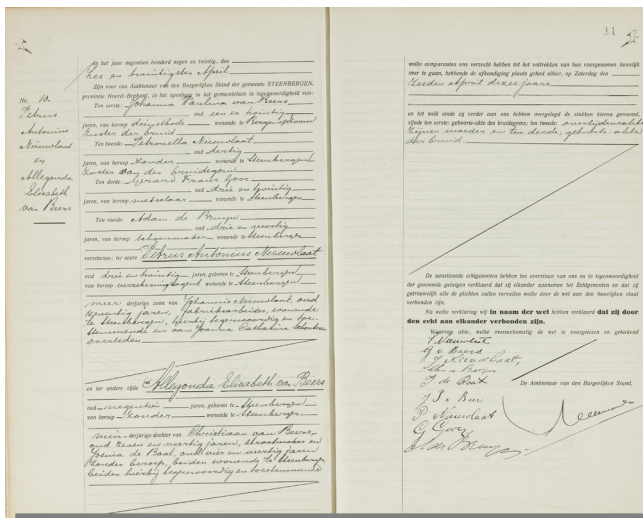 11
in het jaar negentien honderd negen en twintig, den
zes en twintigsten April
Zijn voor ons Ambtenaar van den Burgerlijken Stand der gemeente STEENBERGEN,
provincie Noord-Brabant, in het openbaar in het gemeentehuis in tegenwoordigheid van:
No. 10.
Petrus
Antonius
Nieuwlaat
en
Allegonda
Elisabeth
van Beers
Ten eerste: Johanna Paulina van Beers
oud een en twintig
jaren, van beroep dienstbode wonende te Bergen op Zoom
zuster der bruid
Ten tweede: Petronella Nieuwlaat
oud dertig
jaren, van beroep zonder wonende te Steenbergen
zuster van den bruidegom
Ten derde: Gerard Frans Goor
oud drie en twintig
jaren, van beroep metselaar wonende te Steenbergen
Ten vierde: Adam de Bruyn
oud drie en veertig
jaren, van beroep schoenmaker wonende te Steenbergen
verschenen: ter eenre Petrus Antonius Nieuwlaat
oud drie en twintig jaren, geboren te Steenbergen
van beroep wonende te Steenbergen
meerderjarige zoon van Johannis Nieuwlaat, oud
zeventig jaren, fabrieksarbeider, wonende
te Steenbergen, hierbij tegenwoordig en toe-
stemmende en van Joanna Catharina
overleden
en ter andere zijde Allegonda Elisabeth van Beers
oud negentien jaren, geboren te Steenbergen
van beroep zonder wonende te Steenbergen
minderjarige dochter van Christiaan van Beers,
oud zeven en veertig jaren, straatmaker en
Josina de Baat, oud vier en veertig jaren
zonder beroep, beiden wonende te Steenbergen
beiden hierbij tegenwoordig en toestemmende
welke comparanten ons verzocht hebben tot het voltrekken van hun voorgenomen huwelijk
over te gaan, hebbende de afkondiging plaats gehad alhier, op Zaterdag den
zesden April dezes jaars
en tot welk einde zij verder aan ons hebben overgelegd de stukken hierna genoemd,
zijnde ten eerste: geboorte-akte des bruidegoms; ten tweede: overlijdensakte
zijner moeder en ten derde, geboorte-akte
der bruid
De aanstaande echtgenooten hebben ten overstaan van ons en in tegenwoordigheid
der genoemde getuigen verklaard dat zij elkander aannemen tot Echtgenooten en dat zij
getrouwelijk alle de plichten zullen vervullen welke door de wet aan den huwelijken staat
verbonden zijn.
Na welke verklaring wij in naam der wet hebben verklaard dat zij door
den echt aan elkander verbonden zijn.
Waarvan akte, welke overeenkomstig de wet is voorgelezen en geteekend
Nieuwlaat
v. Beers
Nieuwlaat,
van Beers
J de Baat
De Ambtenaar van den Burgerlijken Stand,
P. Nieuwlaat
G Goor
A de Bruyn